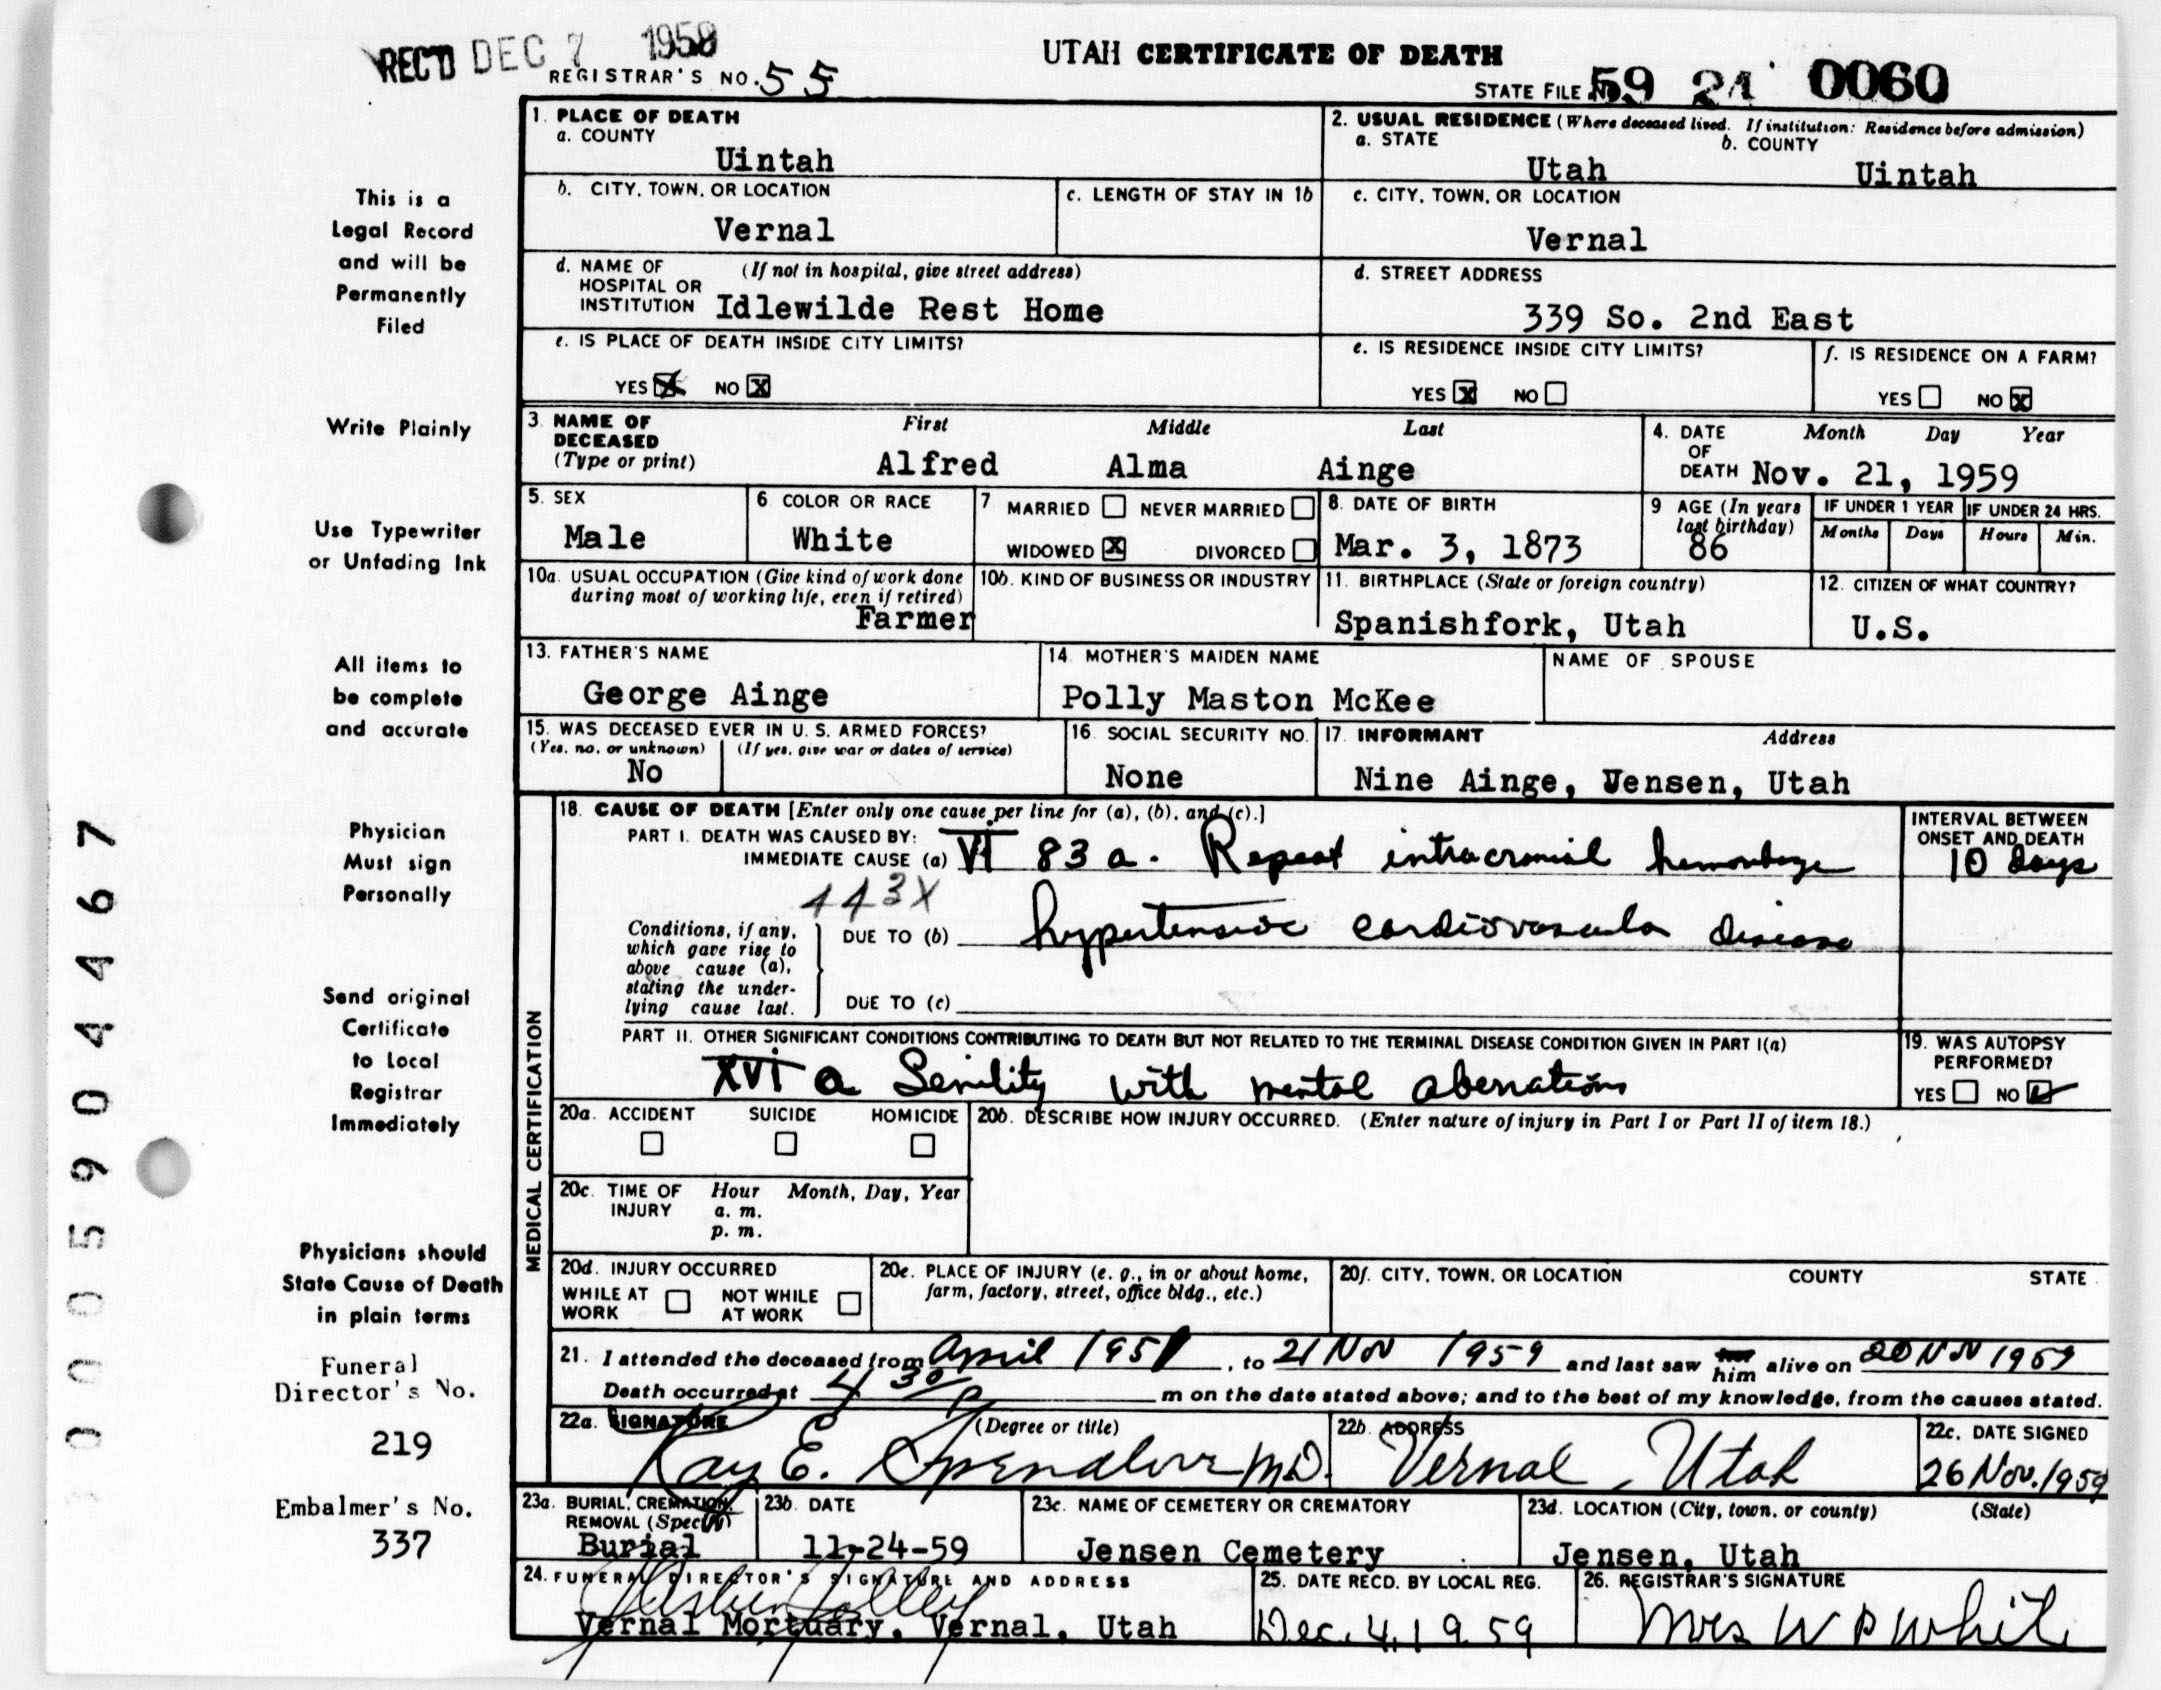 REC'D DEC 7 1959
REGISTRAR'S NO. 55
UTAH CERTIFICATE OF DEATH
STATE FILE NO. 59 24 0060
This is a
Legal Record
and will be
Permanently
Filed
Write Plainly
Use Typewriter
or Unfading Ink
All items to
be complete
and accurate
Physician
Must sign
Personally
Send original
Certificate
to Local
Registrar
Immediately
Physicians should
State Cause of Death
in plain terms
Funeral
Director's No.
219
Embalmer's No.
337
0005904467
1. PLACE OF DEATH
a. COUNTY
Uintah
2. USUAL RESIDENCE (Where deceased lived. If institution: Residence before admission)
a. STATE b. COUNTY
Utah Uintah
b. CITY, TOWN, OR LOCATION
Vernal
c. LENGTH OF STAY IN 1b
c. CITY, TOWN, OR LOCATION
Vernal
d. NAME OF HOSPITAL OR INSTITUTION (If not in hospital, give street address)
Idlewilde Rest Home
d. STREET ADDRESS
339 So. 2nd East
e. IS PLACE OF DEATH INSIDE CITY LIMITS?
YES X NO X
e. IS RESIDENCE INSIDE CITY LIMITS?
YES X NO
f. IS RESIDENCE ON A FARM?
YES NO X
3. NAME OF DECEASED (Type or print)
First Middle Last
Alfred Alma Ainge
4. DATE OF DEATH
Month Day Year
Nov. 21, 1959
5. SEX
Male
6. COLOR OR RACE
White
7 MARRIED NEVER MARRIED
WIDOWED X DIVORCED
8. DATE OF BIRTH
Mar. 3, 1873
9 AGE (In years last birthday)
86
IF UNDER 1 YEAR IF UNDER 24 HRS.
Months Days Hours Min.
10a. USUAL OCCUPATION (Give kind of work done
during most of working life, even if retired)
Farmer
10b. KIND OF BUSINESS OR INDUSTRY
11. BIRTHPLACE (State or foreign country)
Spanishfork, Utah
12. CITIZEN OF WHAT COUNTRY?
U.S.
13. FATHER'S NAME
George Ainge
14. MOTHER'S MAIDEN NAME
Polly Maston McKee
NAME OF SPOUSE
15. WAS DECEASED EVER IN U. S. ARMED FORCES?
(Yes, no, or unknown) (If yes, give war or dates of service)
No
16. SOCIAL SECURITY NO.
None
17. INFORMANT Address
Nine Ainge, Jensen, Utah
MEDICAL CERTIFICATION
18. CAUSE OF DEATH [Enter only one cause per line for (a), (b), and (c).]
PART I. DEATH WAS CAUSED BY:
IMMEDIATE CAUSE (a) VI 83 a. Repeat intracranial hemorrhage
INTERVAL BETWEEN
ONSET AND DEATH
10 days
443X
Conditions, if any,
which gave rise to
above cause (a),
stating the under-
lying cause last.
DUE TO (b) hypertensive cardiovascular disease
DUE TO (c)
PART II. OTHER SIGNIFICANT CONDITIONS CONTRIBUTING TO DEATH BUT NOT RELATED TO THE TERMINAL DISEASE CONDITION GIVEN IN PART I(a)
XVI a Senility with mental aberrations
19. WAS AUTOPSY
PERFORMED?
YES NO
20a. ACCIDENT SUICIDE HOMICIDE
20b. DESCRIBE HOW INJURY OCCURRED. (Enter nature of injury in Part I or Part II of item 18.)
20c. TIME OF INJURY
Hour Month, Day, Year
a. m.
p. m.
20d. INJURY OCCURRED
WHILE AT WORK NOT WHILE AT WORK
20e. PLACE OF INJURY (e. g., in or about home,
farm, factory, street, office bldg., etc.)
20f. CITY, TOWN, OR LOCATION COUNTY STATE
21. I attended the deceased from April 1951, to 21 Nov 1959 and last saw her him alive on 20 Nov 1959
Death occurred at 4 30 p m on the date stated above; and to the best of my knowledge, from the causes stated.
22a. SIGNATURE (Degree or title)
Ray E. Spendlove MD.
22b. ADDRESS
Vernal, Utah
22c. DATE SIGNED
26 Nov. 1959
23a. BURIAL, CREMATION,
REMOVAL (Specify)
Burial
23b. DATE
11-24-59
23c. NAME OF CEMETERY OR CREMATORY
Jensen Cemetery
23d. LOCATION (City, town, or county) (State)
Jensen, Utah
24. FUNERAL DIRECTOR'S SIGNATURE AND ADDRESS
Vernal Mortuary, Vernal, Utah
25. DATE RECD. BY LOCAL REG.
Dec. 4, 1959
26. REGISTRAR'S SIGNATURE
Mrs W P White